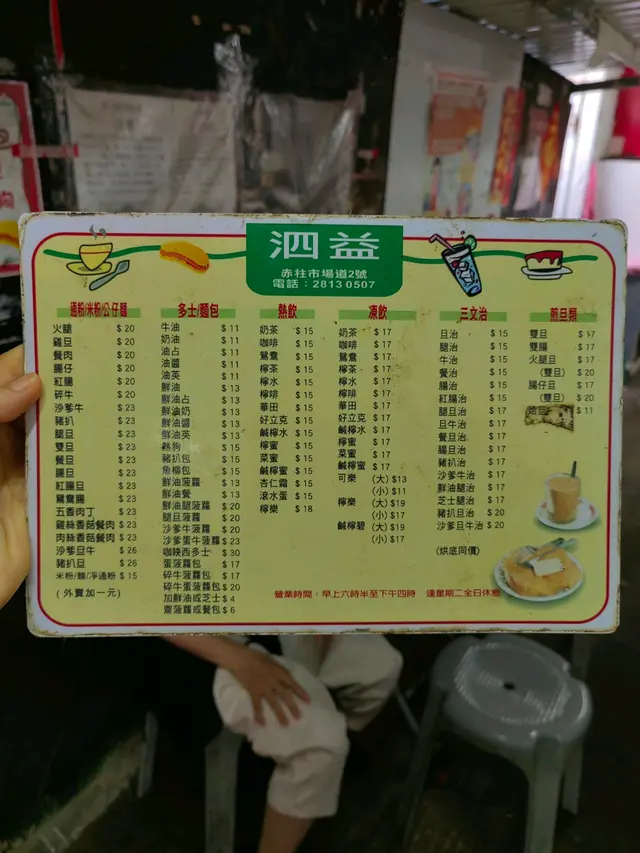 泗益
赤柱市場道2號
電話：2813 0507
通粉/米粉/公仔麵
火腿 $20
雞旦 $20
餐肉 $20
腸仔 $20
紅腸 $20
碎牛 $20
沙爹牛 $23
豬扒 $23
腿旦 $23
雙旦 $23
餐旦 $23
腸旦 $23
紅腸旦 $23
鴛鴦腸 $23
五香肉丁 $23
雞絲香菇餐肉 $23
肉絲香菇餐肉 $23
沙爹旦牛 $26
豬扒旦 $26
米粉/麵/淨通粉 $15
(外賣加一元)
多士/麵包
牛油 $11
奶油 $11
油占 $11
油醬 $11
油英 $11
鮮油 $13
鮮油占 $13
鮮油奶 $13
鮮油醬 $13
鮮油英 $13
熱狗 $15
豬扒包 $15
魚柳包 $15
鮮油菠蘿 $13
鮮油餐 $13
鮮油腿菠蘿 $20
腿旦菠蘿 $20
沙爹牛菠蘿 $20
沙爹蛋牛菠蘿 $23
咖央西多士 $30
蛋菠蘿包 $17
碎牛菠蘿包 $17
碎牛蛋菠蘿包 $20
加鮮油或芝士 $4
齋菠蘿或餐包 $6
熱飲
奶茶 $15
咖啡 $15
鴛鴦 $15
檸茶 $15
檸水 $15
檸啡 $15
華田 $15
好立克 $15
鹹檸水 $15
檸蜜 $15
菜蜜 $15
鹹檸蜜 $15
杏仁霜 $15
滾水蛋 $15
檸樂 $18
凍飲
奶茶 $17
咖啡 $17
鴛鴦 $17
檸茶 $17
檸水 $17
檸啡 $17
華田 $17
好立克 $17
鹹檸水 $17
檸蜜 $17
菜蜜 $17
鹹檸蜜 $17
可樂 (大) $13
(小) $11
檸樂 (大) $19
(小) $17
鹹檸碧 (大) $19
(小) $17
三文治
旦治 $15
腿治 $15
牛治 $15
餐治 $15
腸治 $15
紅腸治 $15
腿旦治 $17
旦牛治 $17
餐旦治 $17
腸旦治 $17
豬扒治 $17
沙爹牛治 $17
鮮油腿治 $17
芝士腿治 $17
豬扒旦治 $20
沙爹旦牛治 $20
(烘底同價)
煎旦類
雙旦 $17
雙腸 $17
火腿旦 $17
(雙旦) $20
腸仔旦 $17
(雙旦) $20
$11
營業時間：早上六時半至下午四時 逢星期二全日休息